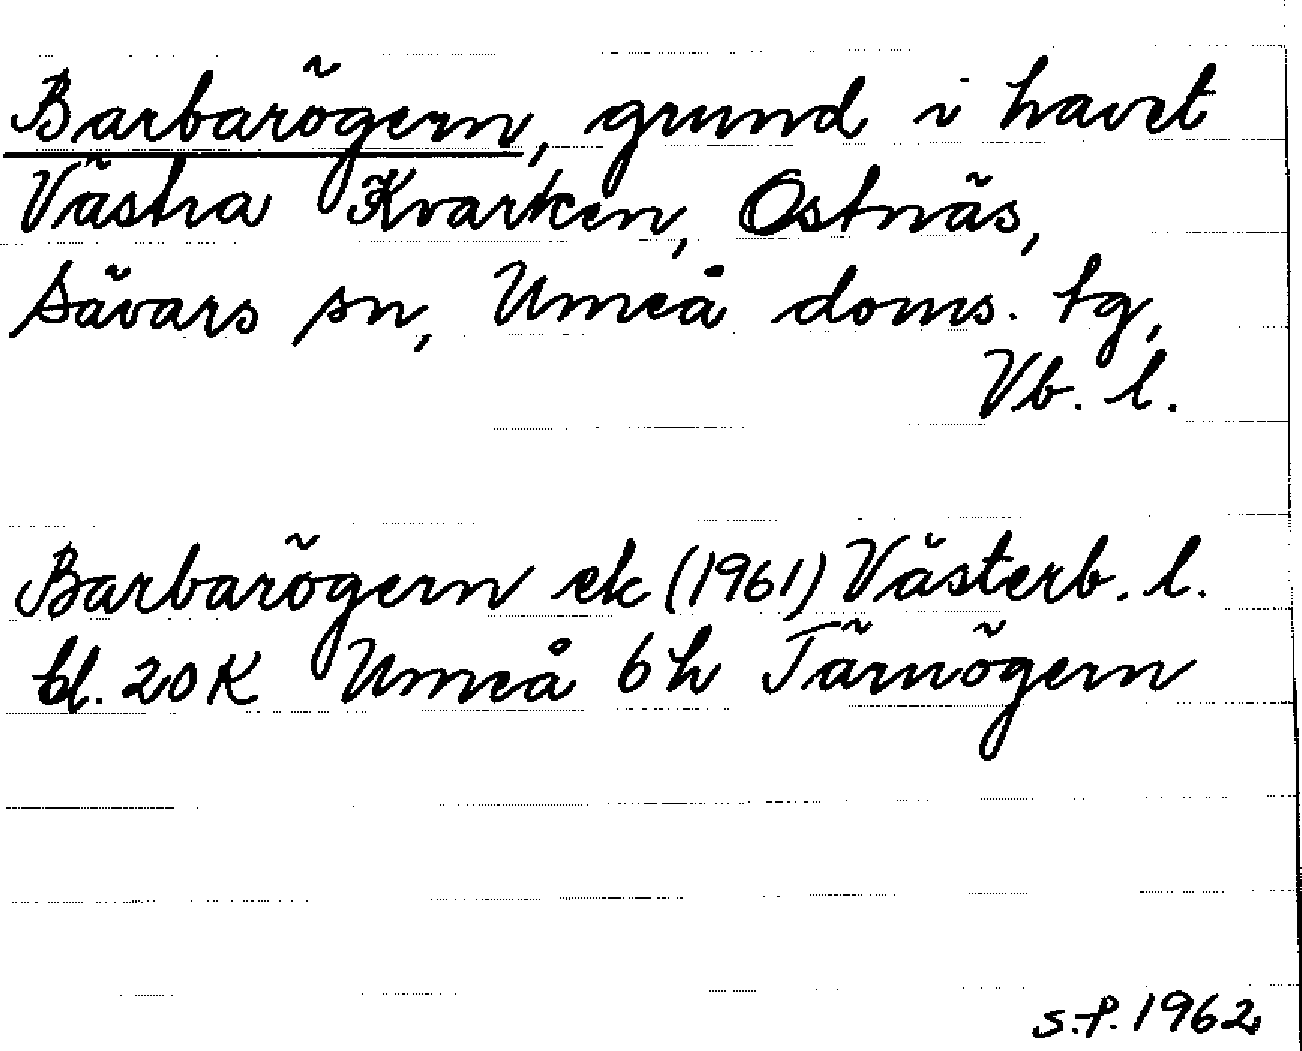 Barbarögern, grund i havet
Västra Kvarken, Ostnäs,
Sävars sn, Umeå doms. tg,
Vb. l.
Barbarögern ek (1961) Västerb. l.
bl. 20 K Umeå 6 h Tärnögern
S.P. 1962